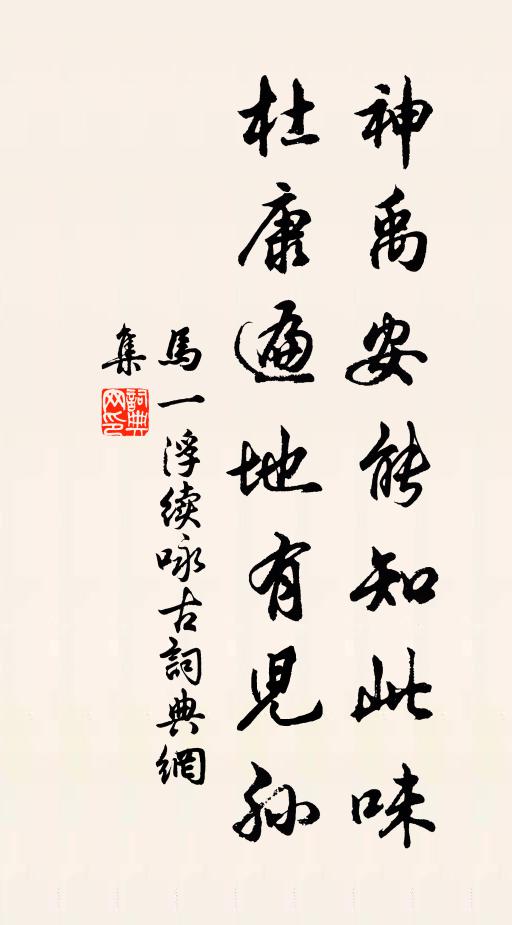 神禹安能知此味
杜康遍地有兒孫
馬一浮續咏古詞典網
集
詞典网印